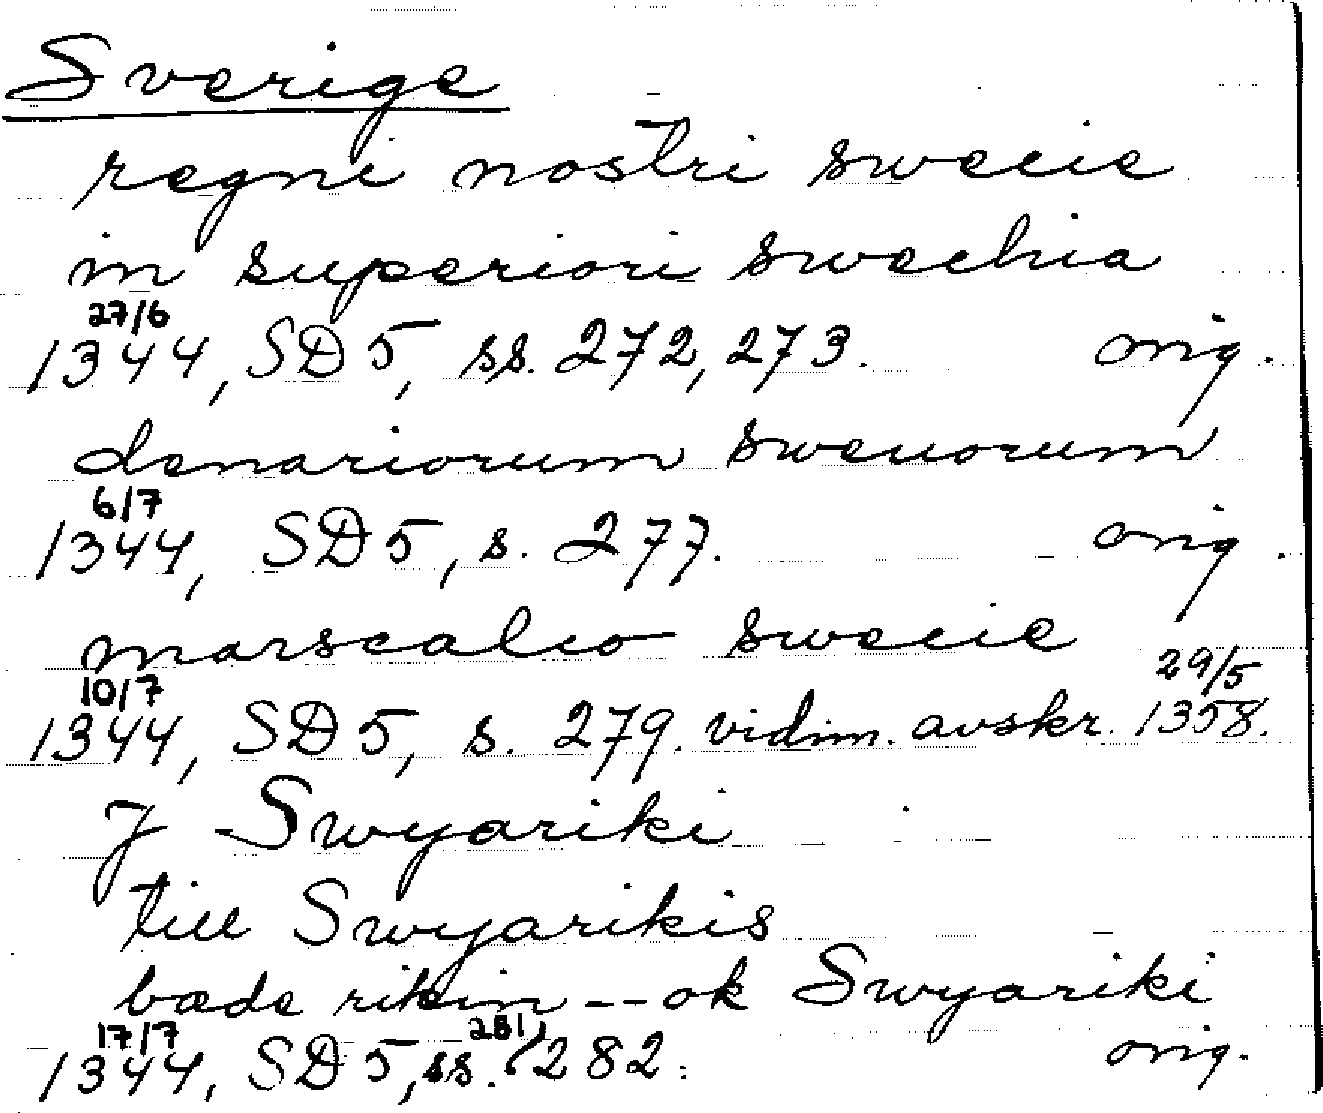 Sverige
regni nostri swecie
in superiori swechia
27/6
1344, SD 5, ss. 272, 273. orig.
denariorum sweuorum
6/7
1344, SD 5, s. 277. orig.
marscalco swecie
10/7 29/5
1344, SD 5, s. 279. vidim. avskr. 1358.
J Swyariki
till Swyarikis
bæde rikin -- ok Swyariki
17/7 281,
1344, SD 5, ss. 282. orig.